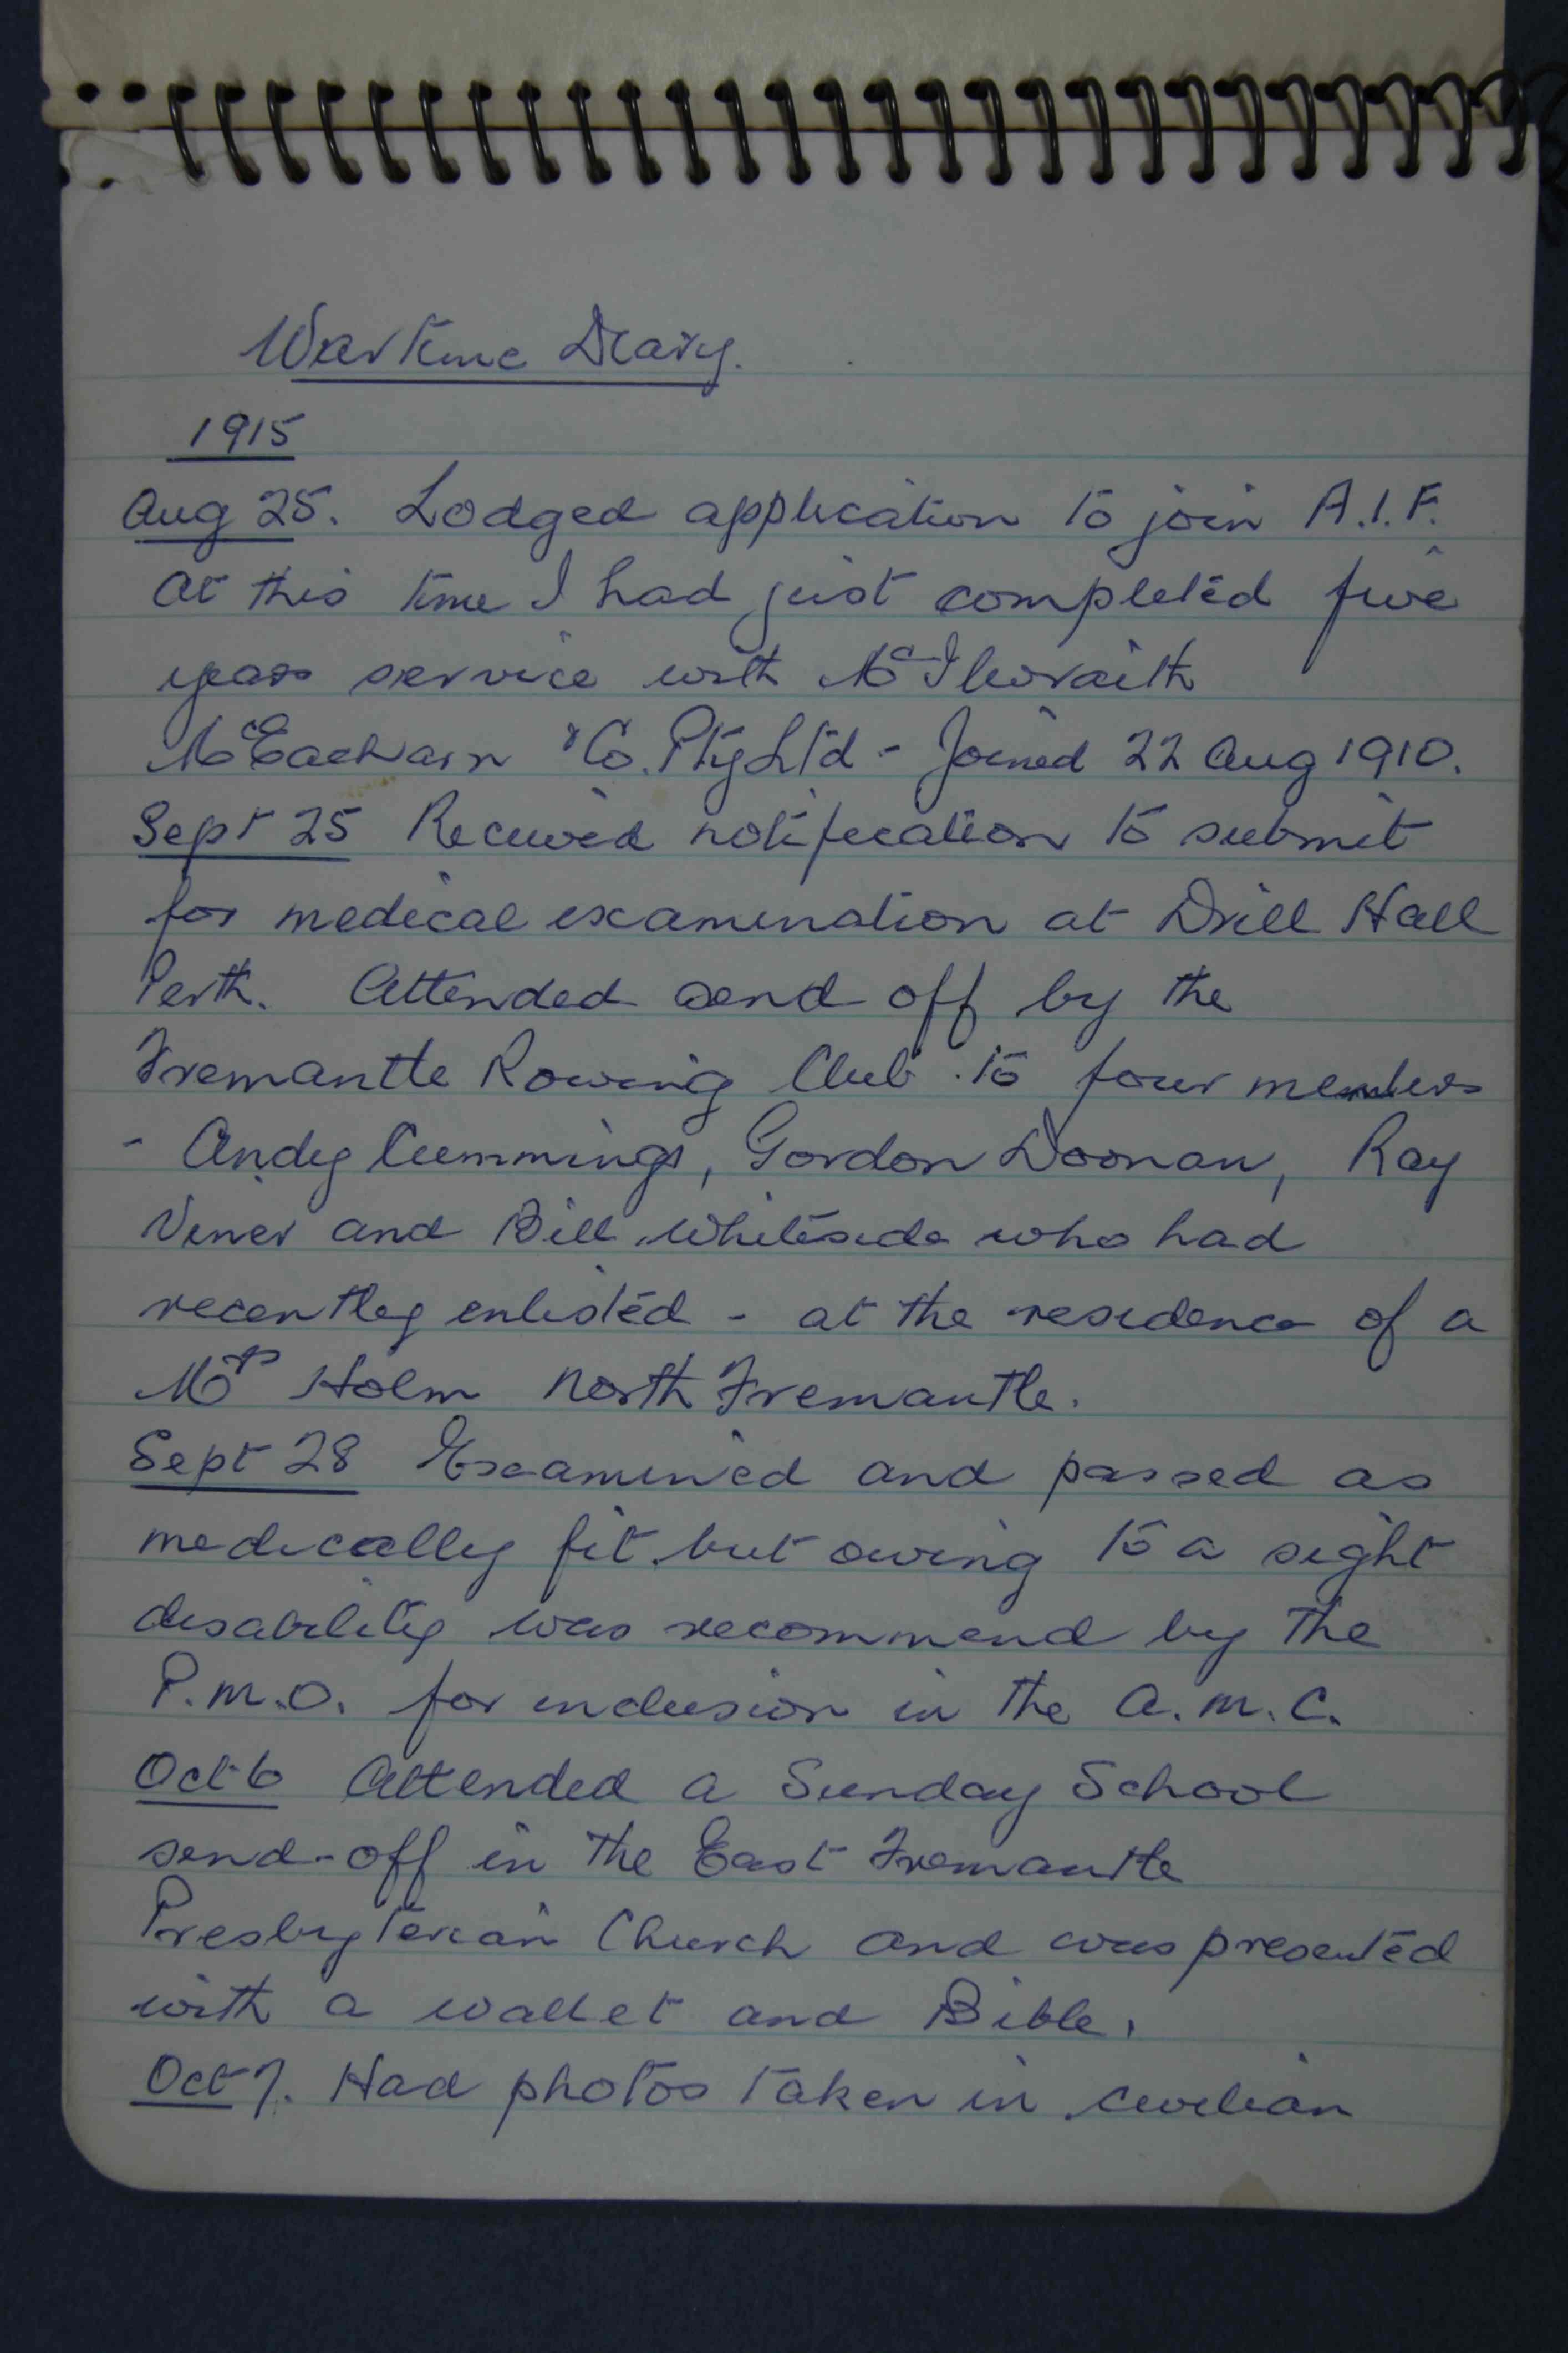 Wartime Diary.
1915
Aug 25. Lodged application to join A.I.F.
At this time I had just completed five
years service with McIlwraith
McEacharn & Co. Pty Ltd - Joined 22 Aug 1910.
Sept 25 Received notification to submit
for medical examination at Drill Hall
Perth. Attended send off by the
Fremantle Rowing Club to four members
- Andy Cummings, Gordon Doonan, Ray
Viner and Bill Whiteside who had
recently enlisted - at the residence of a
Mrs Holm North Fremantle.
Sept 28 Examined and passed as
medically fit but owing to a sight
disability was recommend by the
P.M.O. for inclusion in the A.M.C.
Oct 6 Attended a Sunday School
send-off in the East Fremantle
Presbyterian Church and was presented
with a wallet and Bible.
Oct 7. Had photos taken in civilian